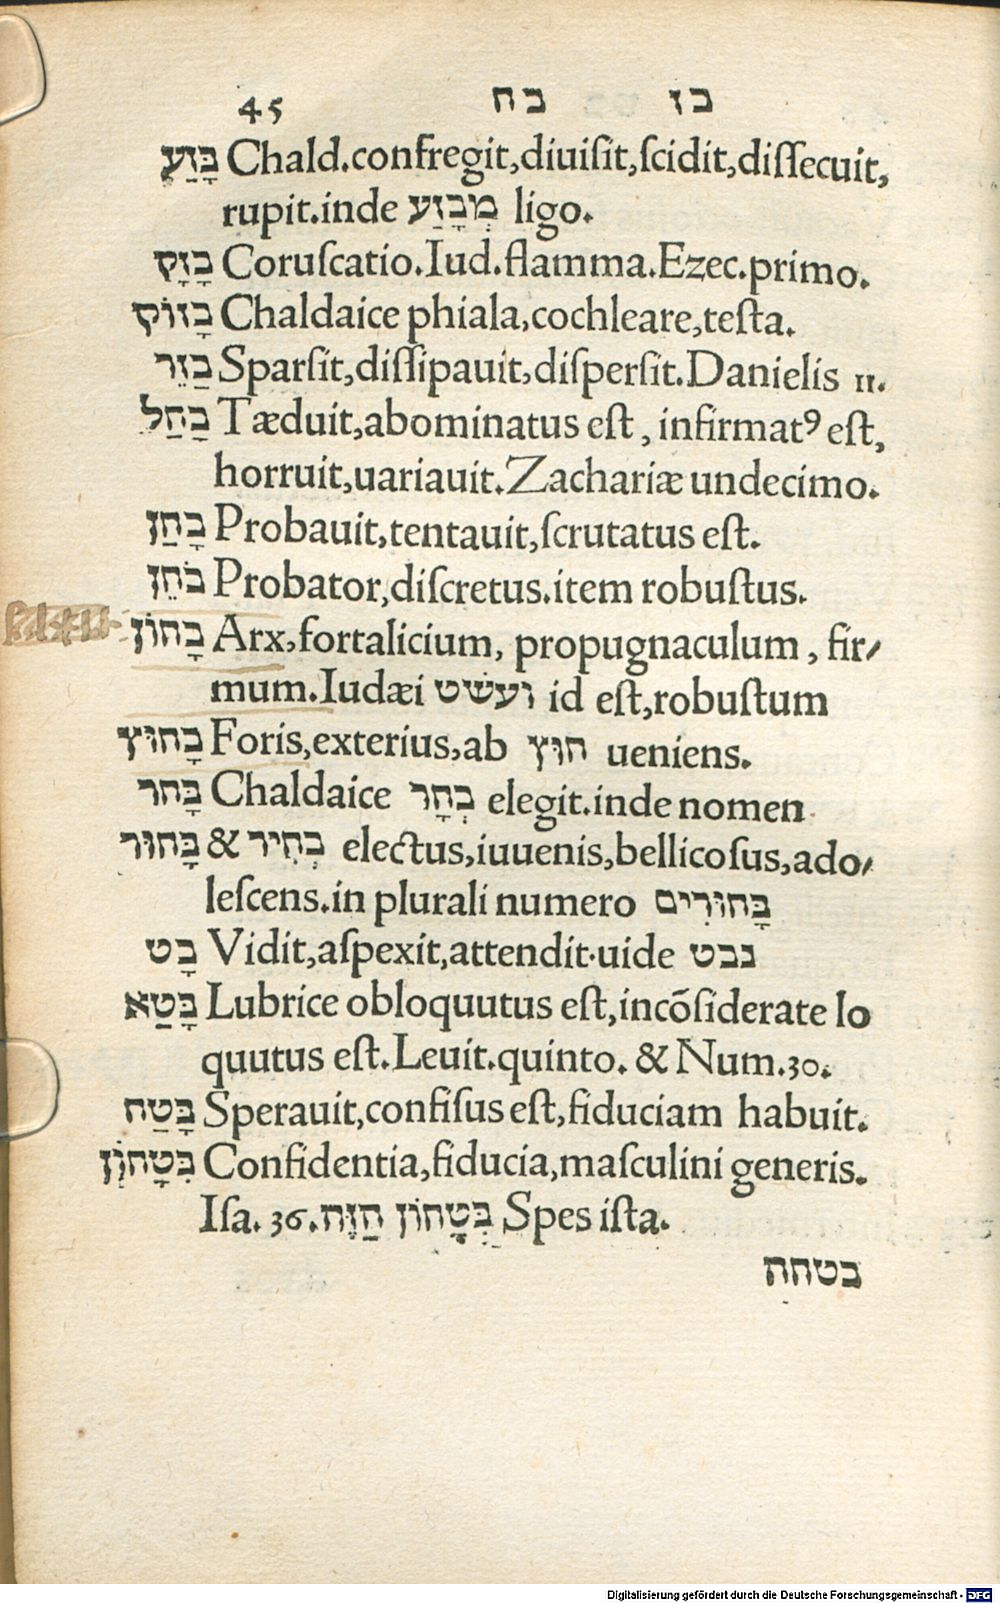 45 בח בז
בָּזַע Chald.confregit,diuiſit,ſcidit,diſſecuit,
rupit.inde מְבָזַע ligo.
בָּזָק Coruſcatio.Iud.flamma.Ezec.primo.
בָּזוֹק Chaldaice phiala,cochleare,teſta.
בַּזֵּר Sparſit,diſſipauit,diſperſit.Danielis 11.
בָּחַל Tæduit,abominatus eſt, infirmatꝰ eſt,
horruit,uariauit.Zachariæ undecimo.
בָּחַן Probauit,tentauit,ſcrutatus eſt.
בֹּחֵן Probator,diſcretus.item robuſtus.
בָּחוֹן Arx,fortalicium, propugnaculum, fir⸗
mum.Iudæi ועשׁט id eſt,robuſtum
בָּחוּץ Foris,exterius,ab חוּץ ueniens.
בָּחר Chaldaice בְּחָר elegit.inde nomen
בָּחוּר & בְּחִיר electus,iuuenis,bellicoſus,ado⸗
leſcens.in plurali numero בָּחוּרִים
בָּט Vidit,aſpexit,attendit.uide נבט
בָּטַא Lubrice obloquutus eſt,incõſiderate lo
quutus eſt.Leuit.quinto. & Num.30.
בָּטַח Sperauit,confiſus eſt,fiduciam habuit.
בִּטָחוֹן Confidentia,fiducia,maſculini generis.
Iſa. 36. בִּטָּחוֹן הַזֶּה Spes iſta.
בטחה
Digitalisierung gefördert durch die Deutsche Forschungsgemeinschaft - DFG